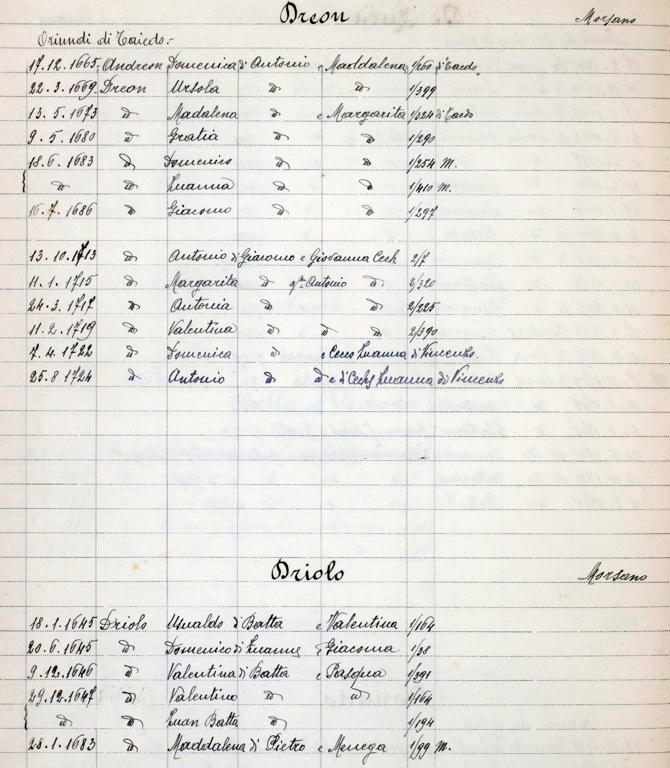 Dreon Morsano
Oriundi di Taiedo:-
17.12.1665 Andreon Domenica di Antonio e Maddalena 1/260 di Taiedo.
22.3.1669 Dreon Ursola " " 1/399
13.5.1673 " Madalena " e Margarita 1/324 di Taiedo
9.5.1680 " Gratia " " 1/290
18.6.1683 " Domenico " " 1/254 M.
{ " " Zuanna " " 1/410 M.
16.7.1686 " Giacomo " " 1/297
13.10.1713 " Antonio di Giacomo e Giovanna Cech 2/7
11.1.1715 " Margarita " qm Antonio " 2/320
24.3.1717 " Antonia " " 2/225
11.2.1719 " Valentina " " " 2/390
7.4.1722 " Domenica " e Cecco Zuanna di Vincenzo.
25.8 1724 " Antonio " " e di Cechs Zuanna di Vincenzo
Driolo Morsano
18.1.1645 Driolo Usvaldo di Batta e Valentina 1/164
20.6.1645 " Domenico di Zuanne e Giacoma 1/38
9.12.1646 " Valentina di Batta e Pasqua 1/391
29.12.1647 " Valentino " " 1/164
{ " " Zuan Batta " 1/194
28.1.1683 " Maddalena di Pietro e Menega 1/99 M.